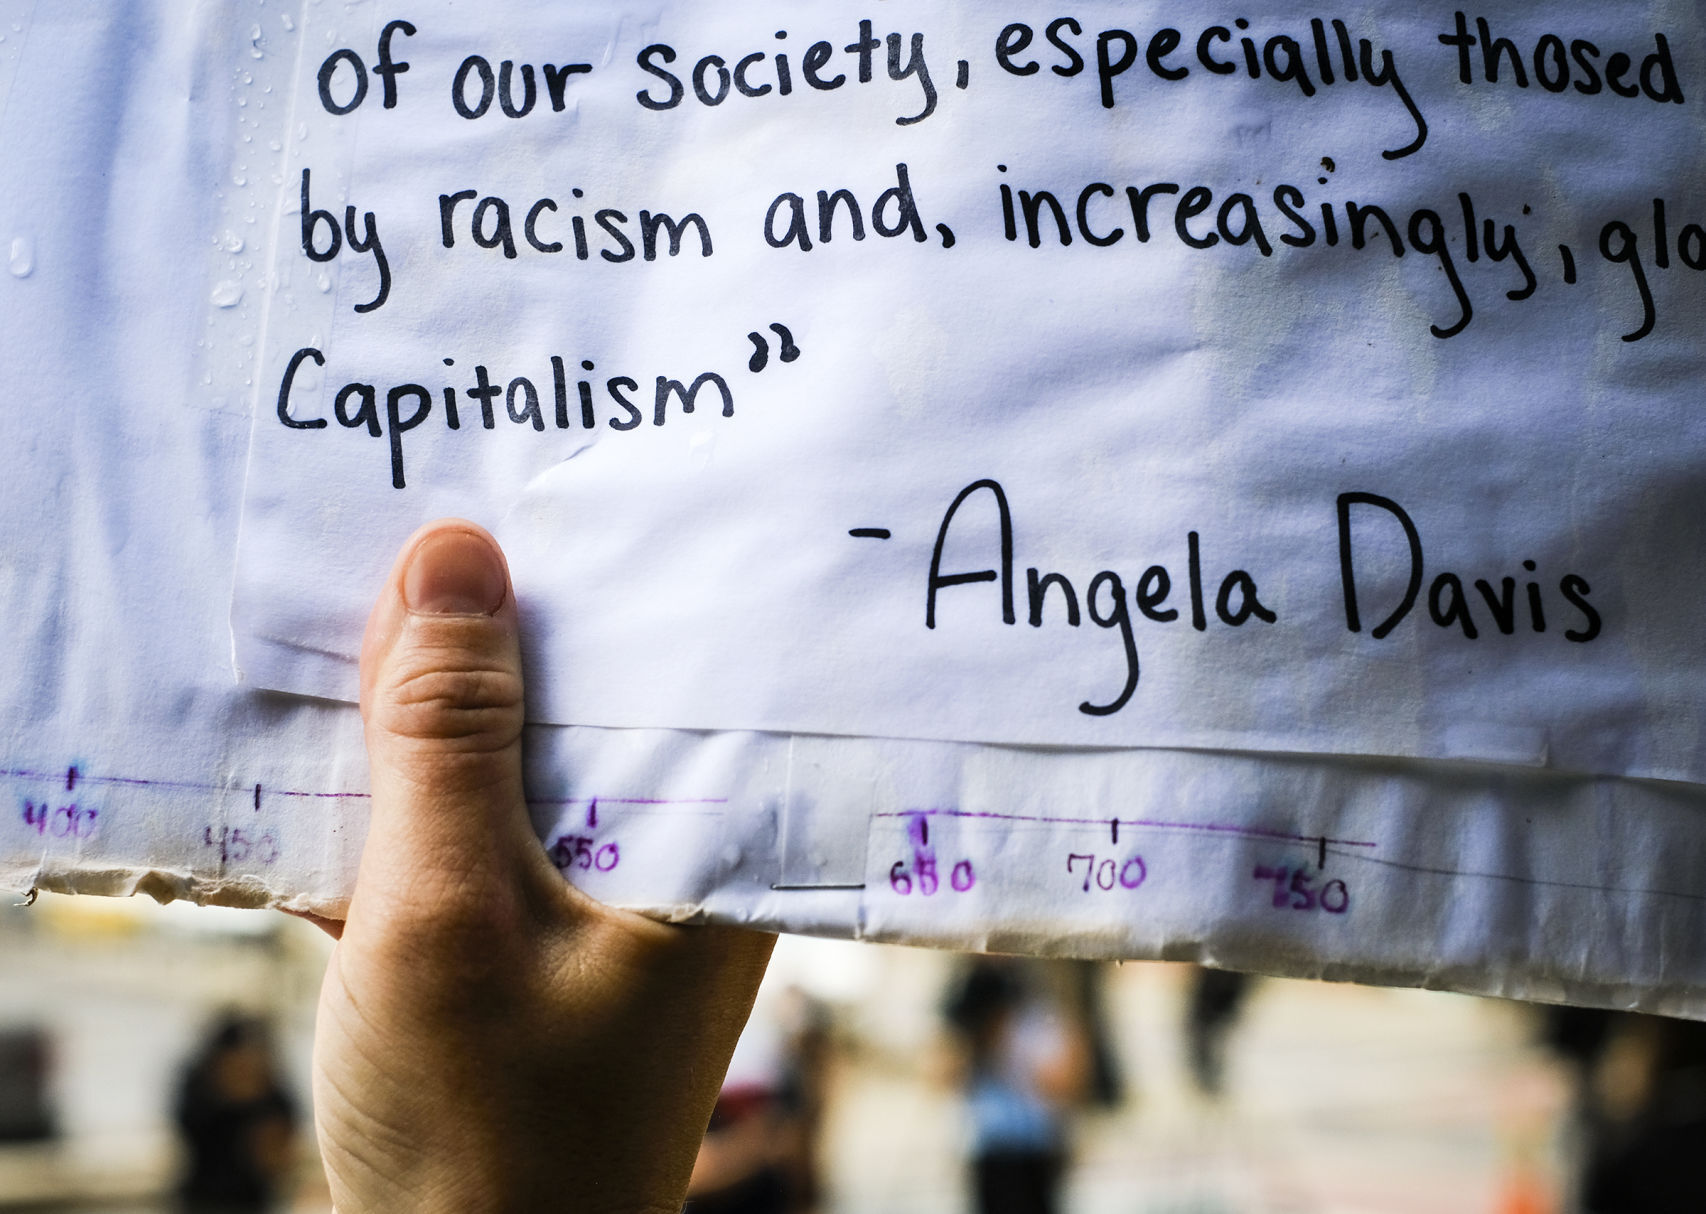 of our society, especially thosed
by racism and, increasingly, glo
Capitalism”
- Angela Davis
400 450 550 650 700 750